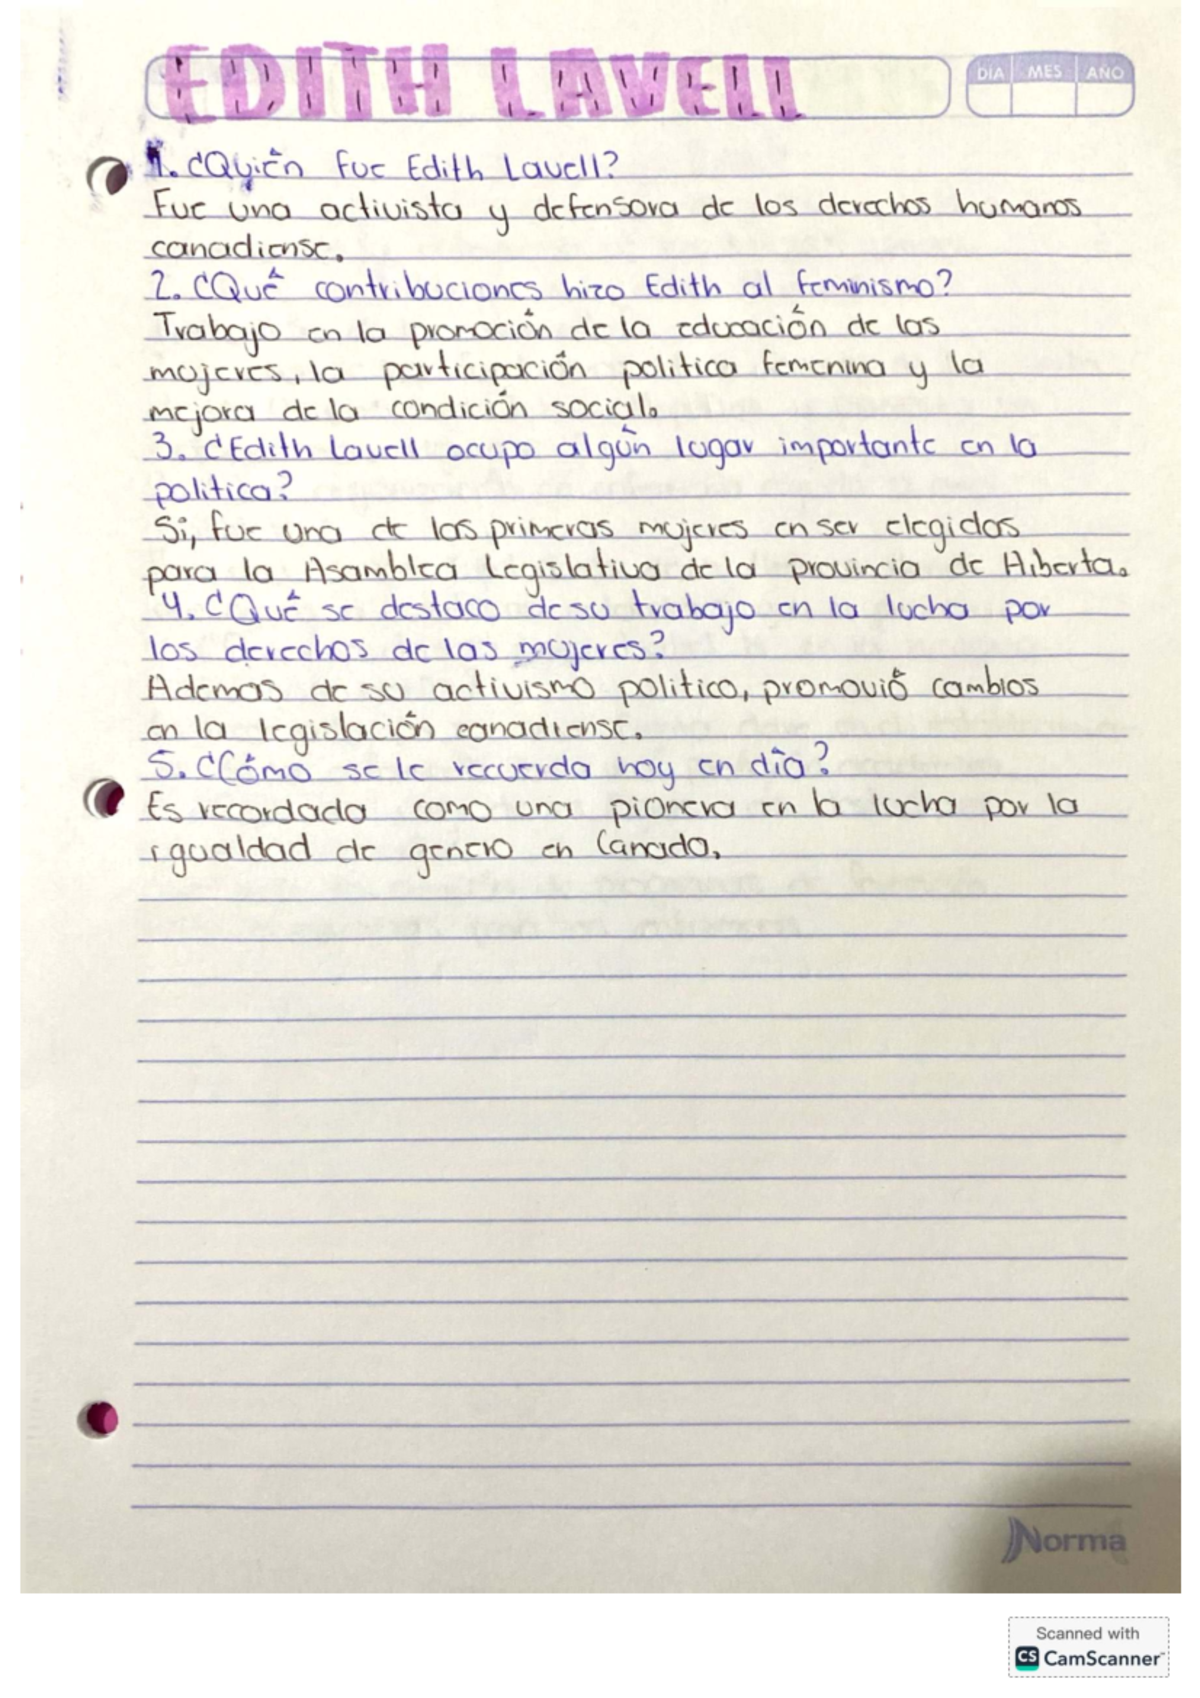 EDITH LAVELL
DIA MES AÑO
1. ¿Quién fue Edith Lavell?
Fue una activista y defensora de los derechos humanos
canadiense.
2. ¿Qué contribuciones hizo Edith al feminismo?
Trabajo en la promoción de la educación de las
mujeres, la participación politica femenina y la
mejora de la condición social.
3. ¿Edith Lavell ocupo algún lugar importante en la
politica?
Si, fue una de las primeras mujeres en ser elegidas
para la Asamblea Legislativa de la provincia de Alberta.
4. ¿Qué se destaco de su trabajo en la lucha por
los derechos de las mujeres?
Ademas de su activismo politico, promovió cambios
en la legislación canadiense.
5. ¿Cómo se le recuerda hoy en día?
Es recordada como una pionera en la lucha por la
igualdad de genero en Canada.
Norma
Scanned with
CS CamScanner